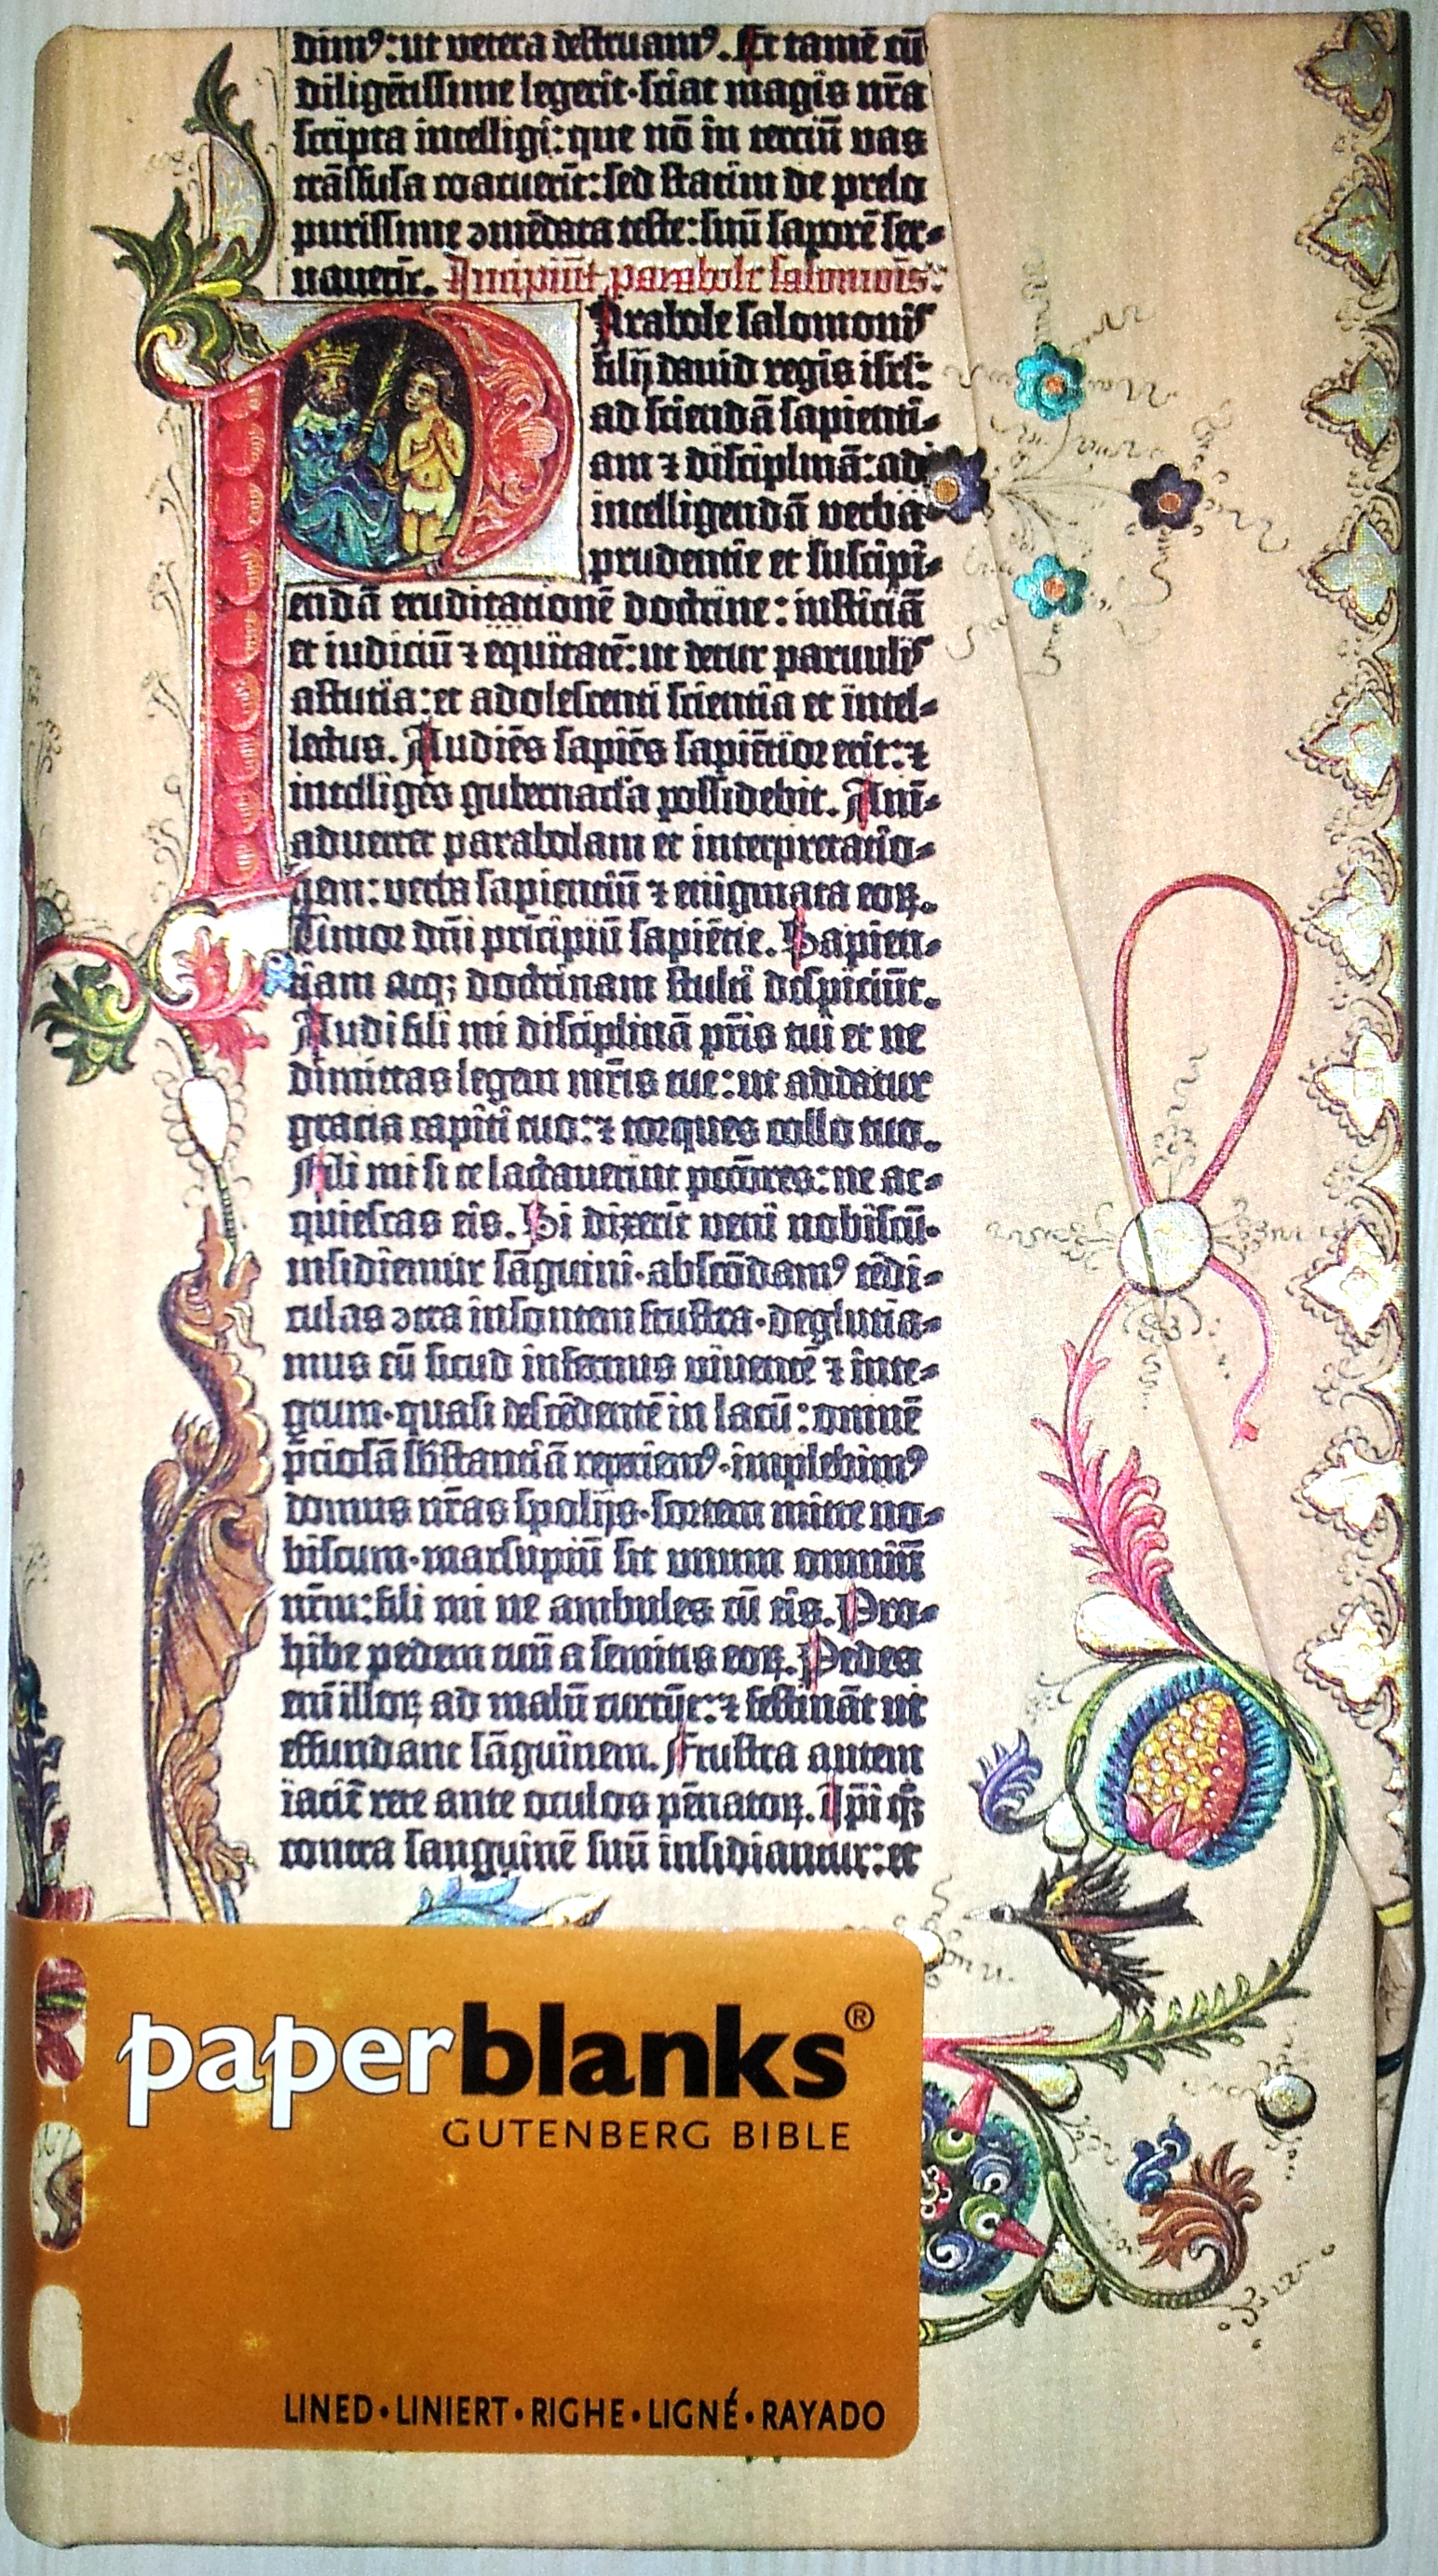 dimꝰ: ut vetera destruamꝰ. Et tamē cū
diligētissime legerit·sciat magis nr̄a
scripta intelligi: que nō in terciū vas
trāsfusa coacuerīt: sed statim de prelo
purissime ↄmēdata teste: suū saporē ser-
vauerīt. Incipiūt parabole salomōis:
Parabole salomonis
filij dauid regis isrl':
ad sciendā sapienti-
am ⁊ disciplinā: ad
intelligendā verba
prudentie et suscipi-
endā eruditationē doctrine: iusticiā
et iudiciū ⁊ equitatē: ut detur paruulis
astutia: et adolescenti scientia et intel-
lectus. Audiēs sapiēs sapiētior erit: ⁊
intelligēs gubernacl'a possidebit. Ani-
aduertet parabolam et interpretatio-
nem: verba sapientiū ⁊ enigmata eoꝝ.
Timor dn̄i prīcipiū sapiētie. Sapien-
tiam atqꝫ doctrinam stulti despiciūt.
Audi fili mi disciplinā pr̄is tui et ne
dimittas legem mr̄is tue: ut addatur
gracia capiti tuo: ⁊ torques collo tuo.
Fili mi si te lactauerint pctōres: ne ac-
quiescas eis. Si dixerīt veni nobiscū·
insidiemur sāguini·abscōdamꝰ tēdi-
culas ↄtra insontem frustra·deglutia-
mus eū sicud infernus viuentē ⁊ inte-
grum·quasi descēdentē in lacū: omnē
p̄ciosā sb̄stantiā reperiemꝰ·implebimꝰ
domus nr̄as spolijs·sortem mitte no-
biscum·marsupiū sit unum omniū
nr̄m: fili mi ne ambules cū eis. Pro-
hibe pedem tuū a semitis eoꝝ. Pedes
eni illoꝝ ad malū currūt: ⁊ festināt ut
effundant sāguinem. Frustra autem
iacit̄ rete ante oculos pēnatoꝝ. Ip̄i qꝫ
contra sanguinē suū insidiantur: et
paperblanks®
GUTENBERG BIBLE
LINED·LINIERT·RIGHE·LIGNÉ·RAYADO